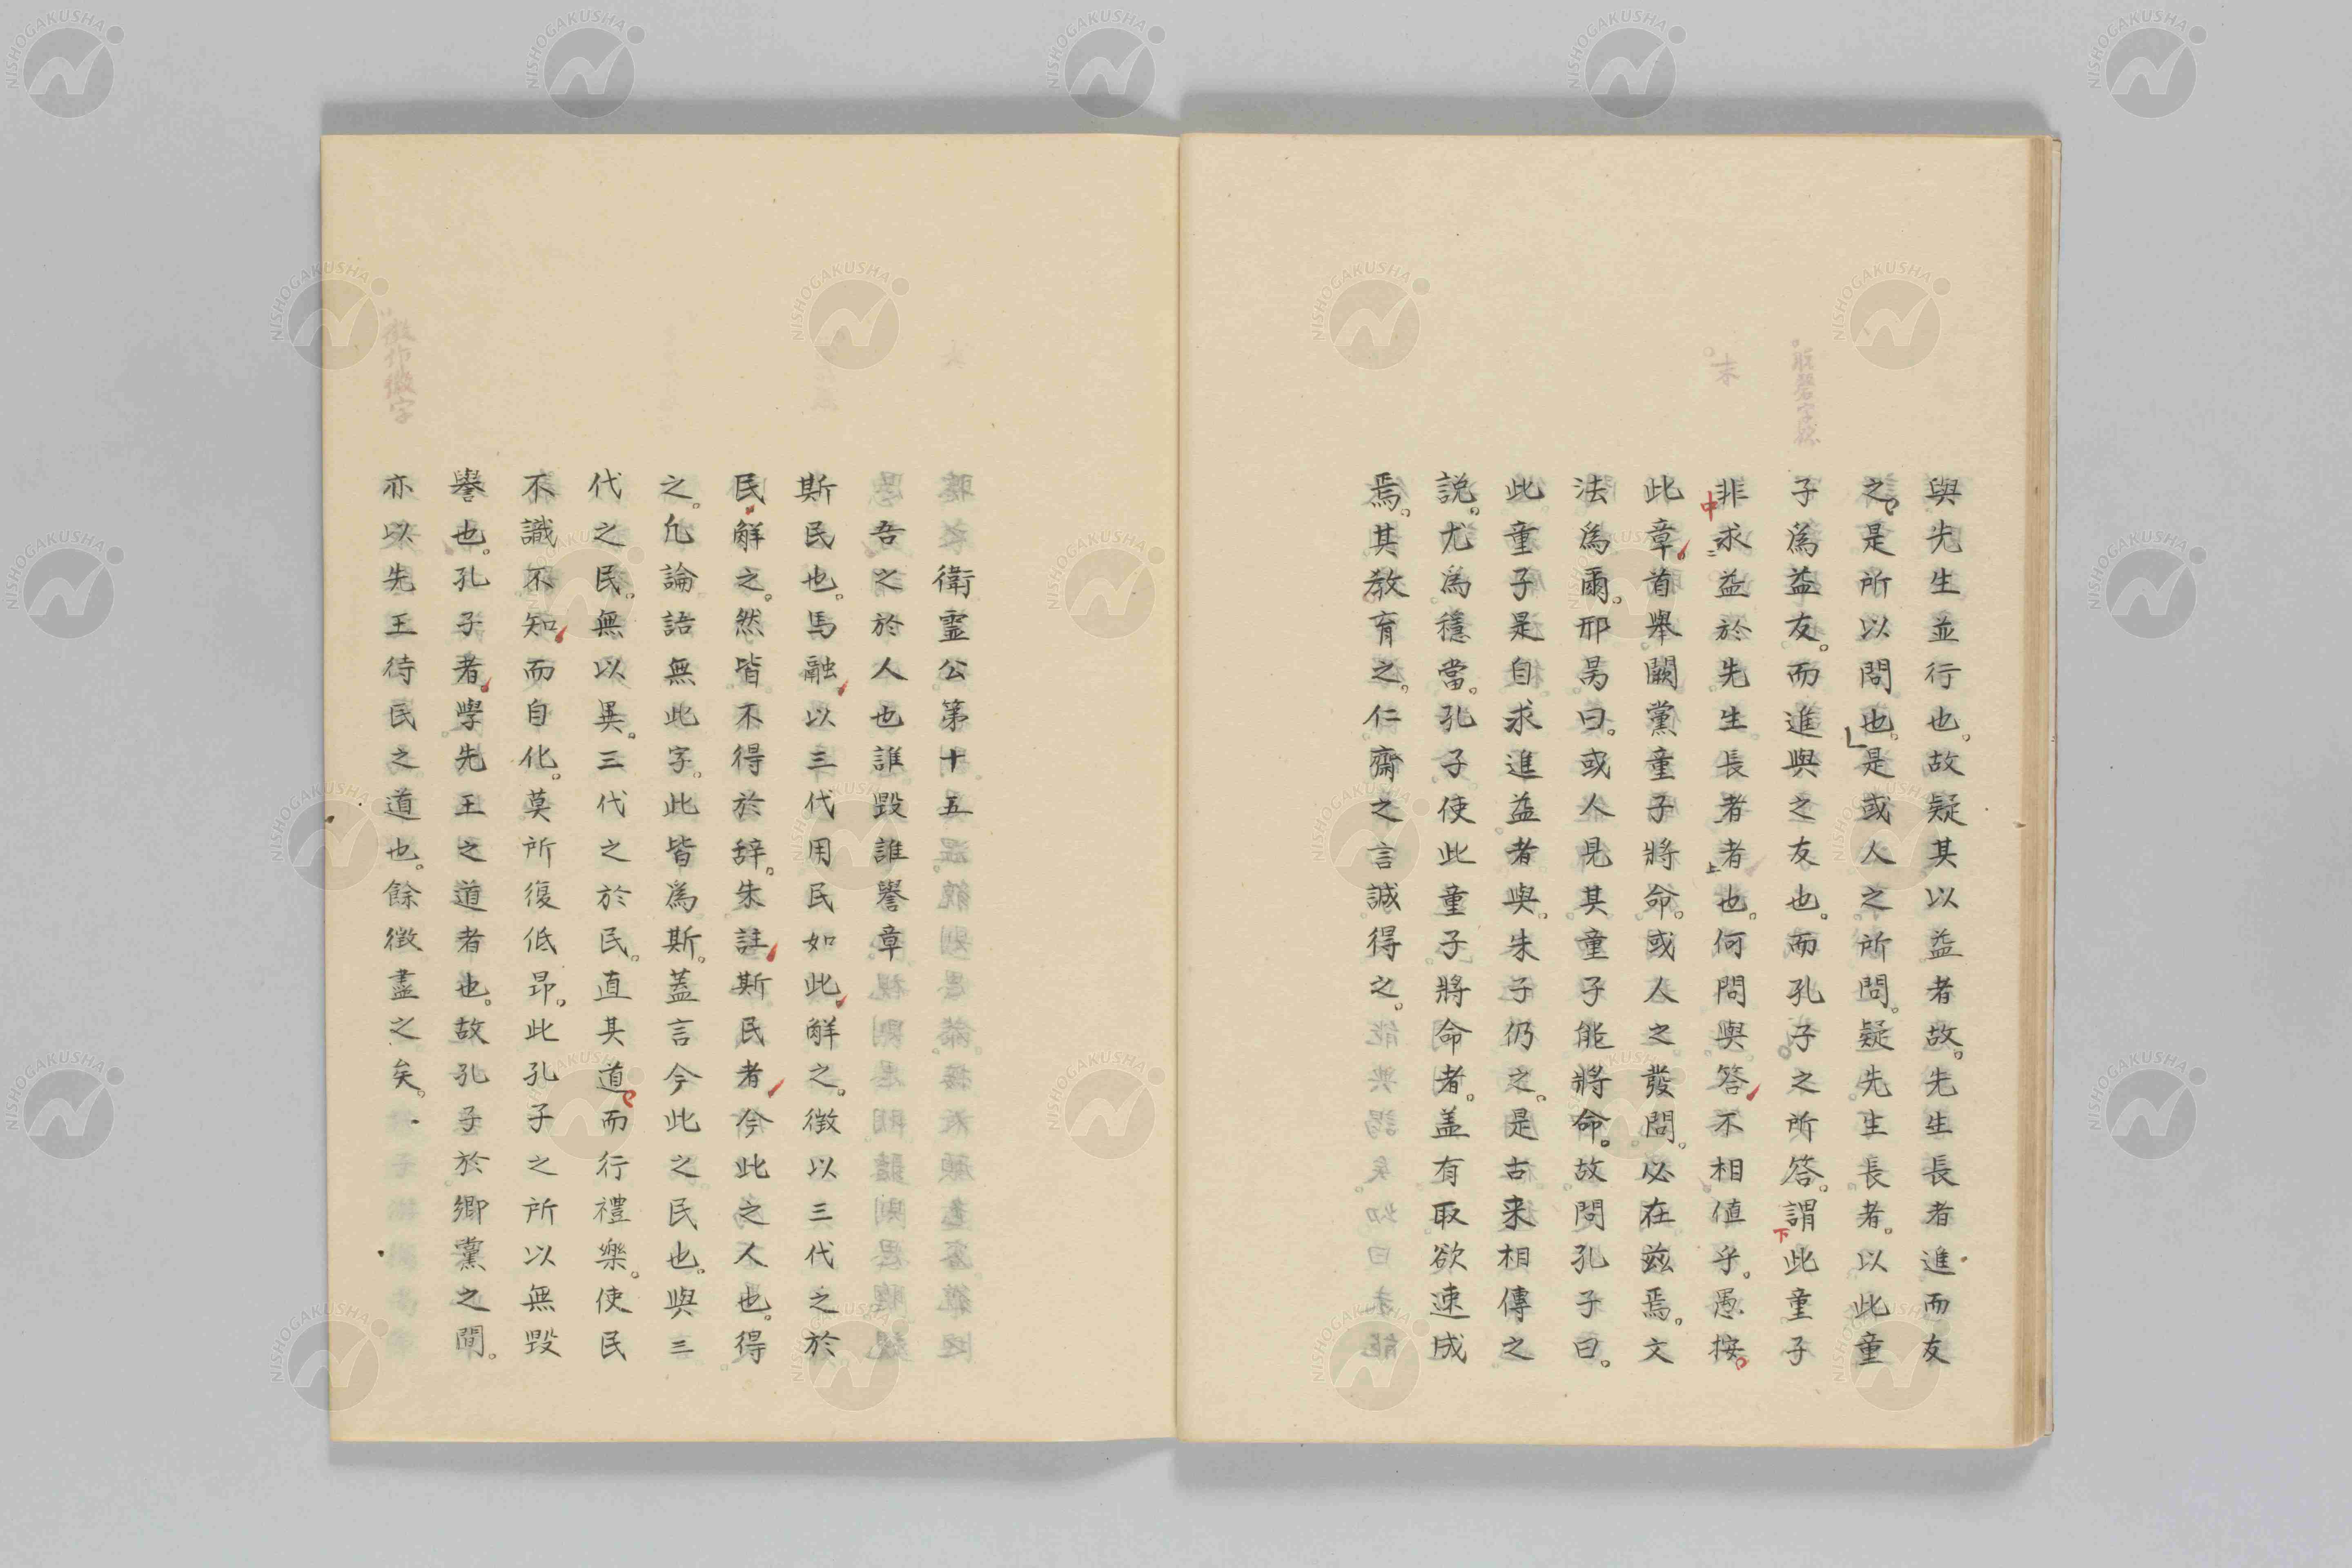 與先生並行也。故疑其以益者故。先生長者進而友
之。是所以問也。是或人之所問。疑先生長者。以此童
子爲益友。而進與之友也。而孔子之所答。謂此童子
非求益於先生長者者也。何問與答不相値乎。愚按。
此章首舉闕黨童子將命。或人之發問。必在茲焉。文
法爲爾。邢昺曰。或人見其童子能將命。故問孔子曰。
此童子是自求進益者與。朱子仍之。是古来相傳之
説。尤爲穩當。孔子使此童子將命者。盖有取欲速成
焉。其教育之。仁齋之言誠得之。
末
中
二
上
下
衛霊公第十五
吾之於人也誰毀誰譽章
斯民也。馬融以三代用民如此解之。徴以三代之於
民解之。然皆不得於辞。朱註斯民者今此之人也。得
之。凢論語無此字。此皆爲斯。蓋言今此之民也。與三
代之民。無以異。三代之於民。直其道而行禮樂。使民
不識不知而自化。莫所復低昂。此孔子之所以無毀
譽也。孔子者學先王之道者也。故孔子於鄉黨之間。
亦以先王待民之道也。餘徴盡之矣。
NISHOGAKUSHA